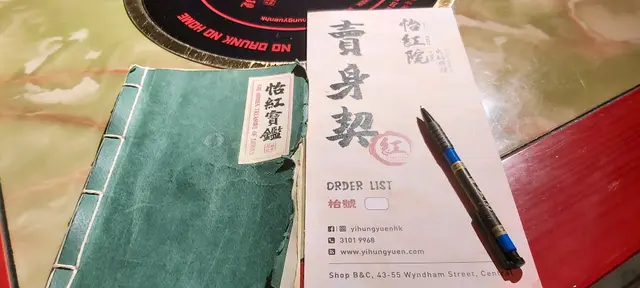 NO DRUNK NO HOME
yihungyuenhk
怡紅寶鑑
怡紅院
賣身契
紅
ORDER LIST
枱號
yihungyuenhk
3101 9968
www.yihungyuen.com
Shop B&C, 43-55 Wyndham Street, Central